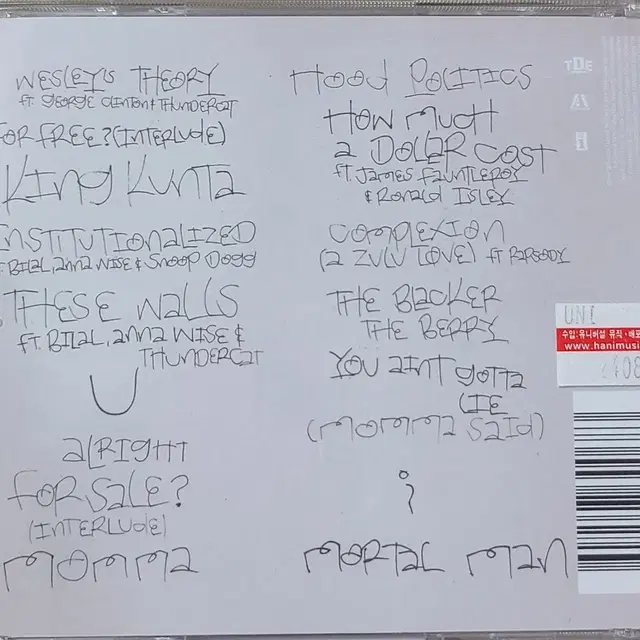 WESLEY'S THEORY
ft. GEORGE CLINTON & THUNDERCAT
FOR FREE? (INTERLUDE)
KING KUNTA
INSTITUTIONALIZED
FT. BILAL, ANNA WISE & SNOOP DOGG
THESE WALLS
FT. BILAL, ANNA WISE &
THUNDERCAT
U
ALRIGHT
FOR SALE?
(INTERLUDE)
MOMMA
HOOD POLITICS
HOW MUCH
A DOLLAR COST
FT. JAMES FAUNTLEROY
& RONALD ISLEY
COMPLEXION
(A ZULU LOVE) FT RAPSODY
THE BLACKER
THE BERRY
YOU AINT GOTTA
LIE
(MOMMA SAID)
i
MORTAL MAN
TDE
UNI
수입:유니버설 뮤직·배포
www.hanimusi